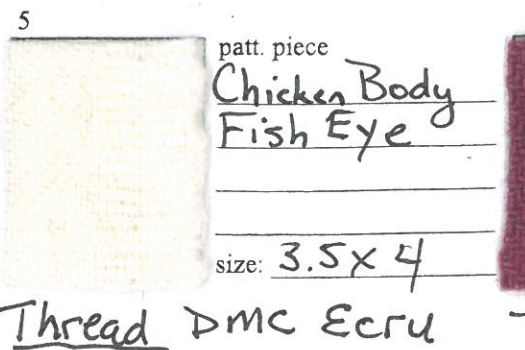 5
patt. piece
Chicken Body
Fish Eye
size: 3.5 x 4
Thread DMC Ecru